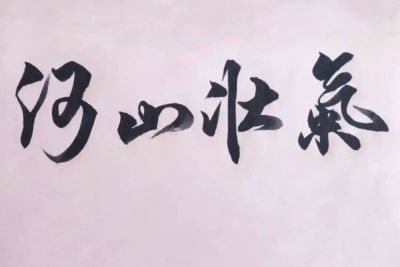 氣壮山河